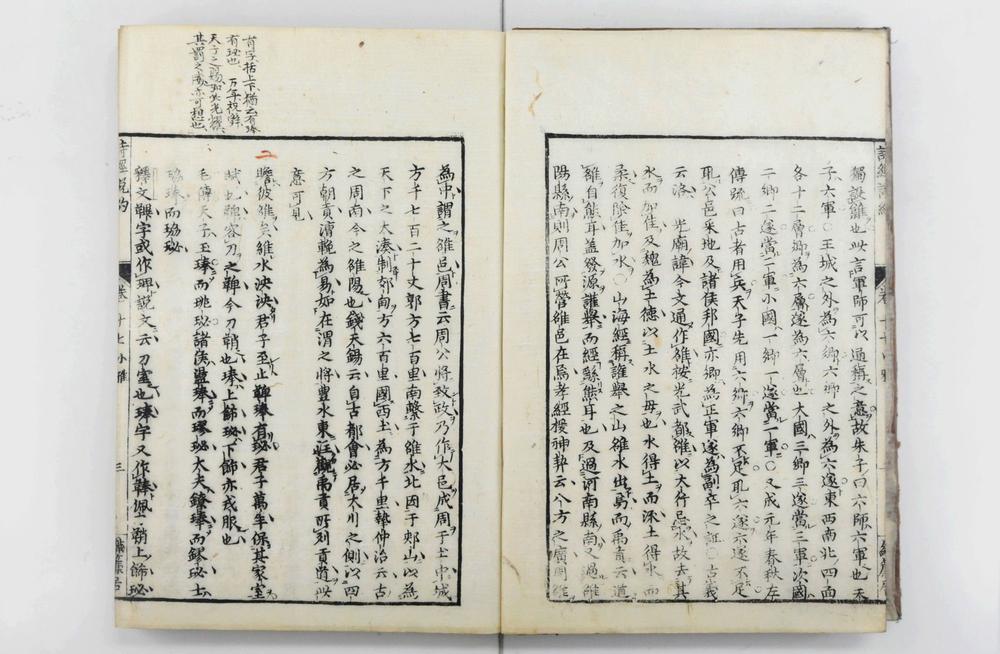 獨設雒也此言軍師可以通稱之意故朱子曰六師六軍也天
子六軍○王城之外為六鄉六鄉之外為六遂東西南北四面
各十二層鄉為六層遂為六層也大國三鄉三遂當三軍次國
二鄉二遂當二軍小國一鄉一遂當一軍○又成元年春秋左
傳疏曰古者用兵天子先用六鄉六鄉不足取六遂六遂不足
取公邑采地及諸侯邦國亦鄉為正軍遂為副卒之証○古義
云洛 光廟諱今文通作雒按光武都雒以大忌水故去其
水而加佳及魏為土德以土水之母也水得土而深土得水而
柔復除佳加水○山海經稱讙舉之山雒水出焉而禹貢云道
雒自熊耳蓋發源讙舉而經熊耳也及過河南縣南又過雒
陽縣南則周公所營雒邑在焉孝經援神契云八方之廣周雒
為中謂之雒邑周書云周公將致政乃作大邑成周于土中城
方千七百二十丈郛方七百里南繫于雒水北因于郟山以為
天下之大湊制郊甸方六百里國西土為方千里摯仲治云古
之周南今之雒陽也錢天錫云自古都會必居大川之側以四
方朝貢漕輓為易如在渭之將豐水東注觀禹貢所列貢道此
意可見
二
瞻彼雒矣維水泱泱君子至止鞞琫有珌君子萬年保其家室
賦也鞞容刀之鞞今刀鞘也琫上飾珌下飾亦戎服也
毛傳天子玉琫而珧珌諸侯璗琫而璆珌大夫鐐琫而鏐珌士
珕琫而珕珌
釋文鞞字或作琕說文云刀室也琫字又作鞛佩刀鞘上飾珌
有字括上下猶云有琫
有珌也 万年枚錄
天子之所賜如其光耀
其賞之盛亦可想也
詩經說約
卷十七小雅
三